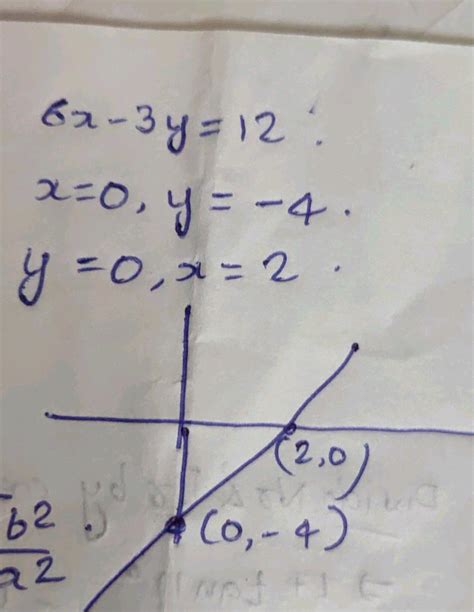 6x-3y=12.
x=0, y=-4.
y=0, x=2.
(2,0)
(0,-4)
b²
a²